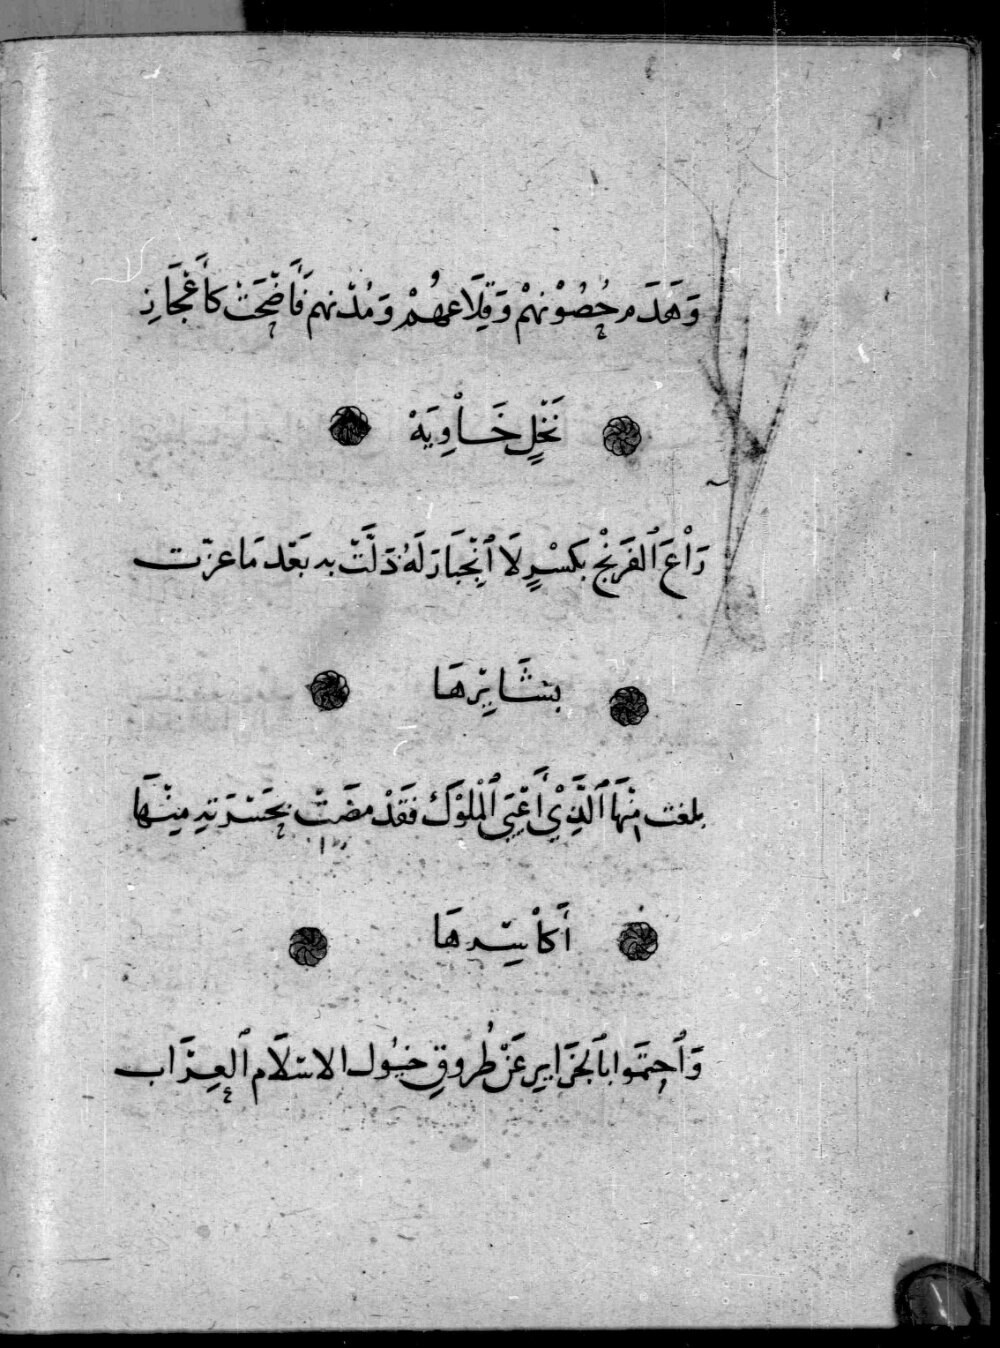 وَهَدَم حُصُوْنهمْ وَقِلَاعهُمْ وَمُدْنهم فَأَضْحَتْ كَأَعْجَازِ
نَخْلٍ خَاْوِيَهْ
رَاْعَ ٱلفَرَنْج بكسْرٍ لَا ٱنْجِبَارَ لَهُ ذَلَّتْ به بَعْد مَا عزّت
بشَايِرْهَا
بلغت مِنْهَا ٱلَّذِيْ أَعْيَى ٱلْمُلوْكَ فقَدْ مضَتْ بحَسْرَتهِ مِنْهَا
أَكاْسِرهَا
وَٱحتَمَوا بٱلجَزَايرِ عَنْ طُروقِ خيُول الاسْلَام ٱلعِرَاب